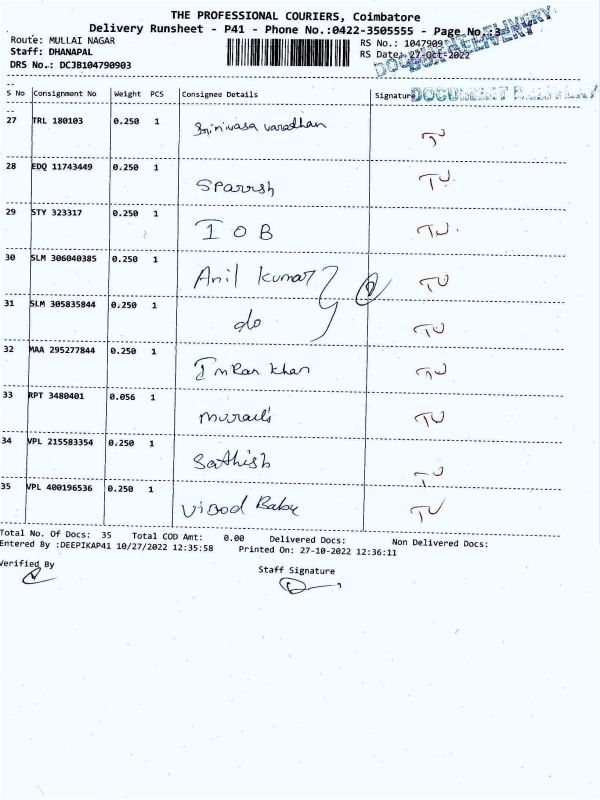 THE PROFESSIONAL COURIERS, Coimbatore
Delivery Runsheet - P41 - Phone No.:0422-3505555 - Page No.:3
Route: MULLAI NAGAR
RS No.: 1047909
Staff: DHANAPAL
RS Date: 27-Oct-2022
DRS No.: DCJB104790903
DOCUMENT DELIVERY
S No Consignment No Weight PCS Consignee Details Signature
27 TRL 180103 0.250 1 Srinivasa varadhan TJ
28 EDQ 11743449 0.250 1 Sparrsh TJ
29 STY 323317 0.250 1 I O B TJ
30 SLM 306040385 0.250 1 Anil kumar TJ
31 SLM 305835844 0.250 1 do TJ
32 MAA 295277844 0.250 1 Imran khan TJ
33 RPT 3480401 0.056 1 TJ
34 VPL 215583354 0.250 1 Sathish TJ
35 VPL 400196536 0.250 1 Vinod Babu TJ
Total No. Of Docs: 35 Total COD Amt: 0.00 Delivered Docs: Non Delivered Docs:
Entered By :DEEPIKAP41 10/27/2022 12:35:58 Printed On: 27-10-2022 12:36:11
Verified By
Staff Signature